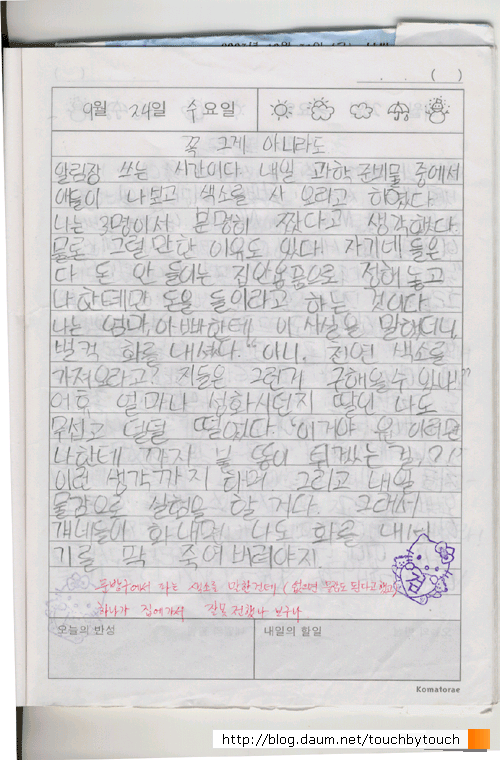 9월 24일 수요일
꼭 그게 아니라도
알림장 쓰는 시간이다. 내일 과학 준비물 중에서
애들이 나보고 색소를 사 오라고 하였다
나는 3명이서 분명히 짰다고 생각했다
물론 그럴만한 이유도 있다. 자기네들은
다 돈 안 들이는 집안용품으로 정해놓고
나한테만 돈을 들이라고 하는 것이다
나는 엄마, 아빠한테 이 사실을 말했더니,
벌컥 화를 내셨다. "아니, 천연 색소를
가져오라고? 지들은 그런거 구해올수 있나!"
어휴 얼마나 섬찟하던지 딸인 나도
무섭고 덜덜 떨었다. '이거야 원, 이러면
나한테 까지 불똥이 튀겠는걸,?!'
이런 생각까지 하며. 그리고 내일
물감으로 실험을 할 거다. 그래서
걔네들이 화내면, 나도 화를 내서
기를 팍 죽여버려야지.
문방구에서 파는 색소를 말한건데 (없으면 물감도 된다고 했고)
하나가 집에가서 잘못 전했나 보구나
검
오늘의 반성
내일의 할일
Komatorae
http://blog.daum.net/touchbytouch